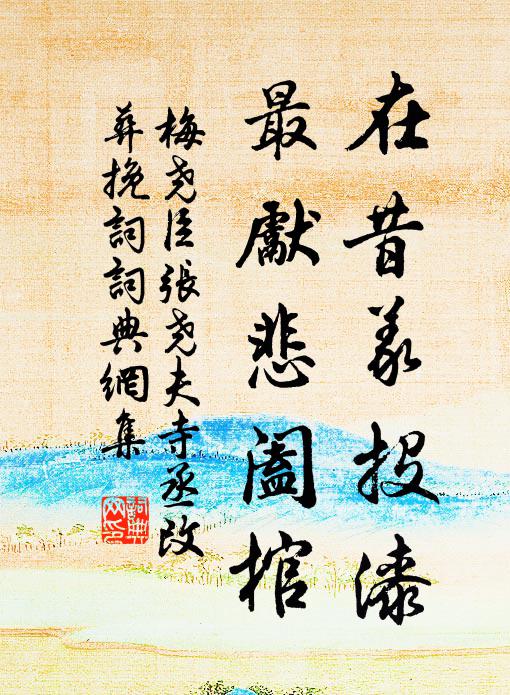 在昔義投漆
最獻悲闔棺
梅堯臣張堯夫寺丞改
葬挽詞詞典網集
詞典网印